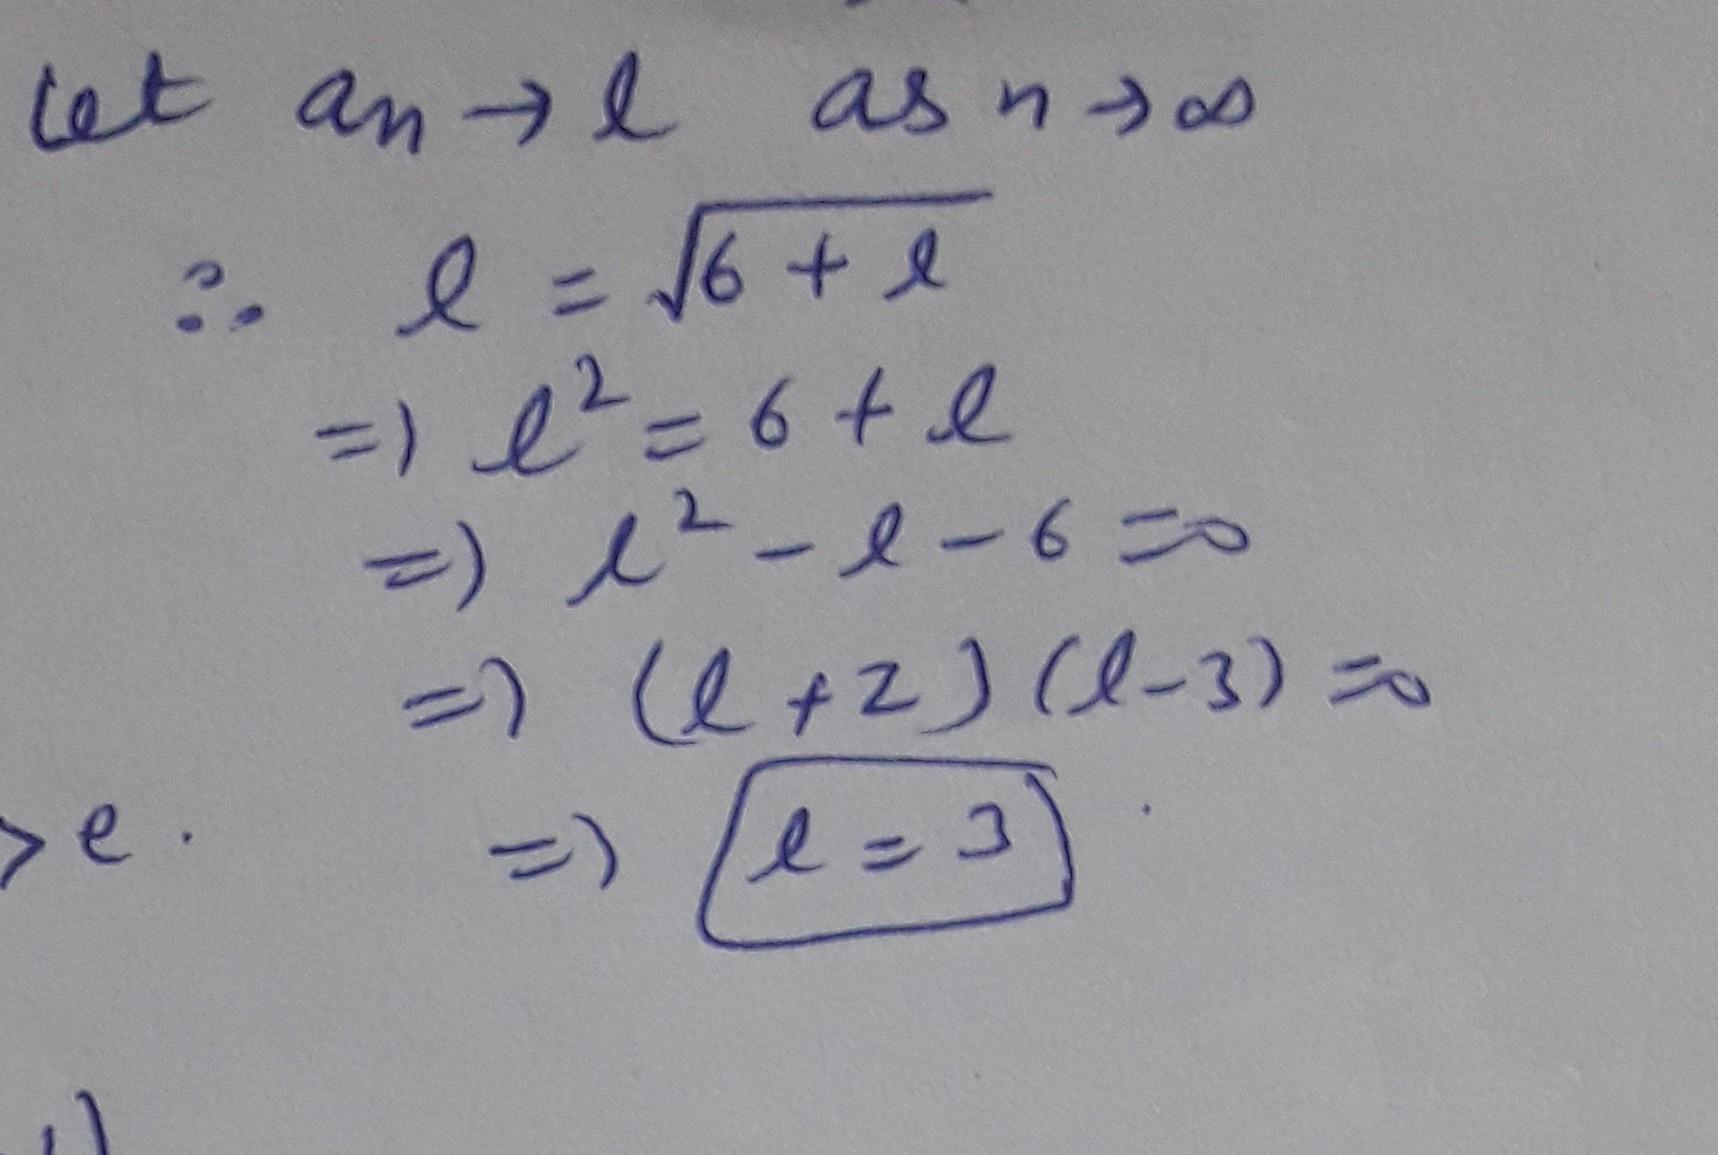 Let an → l as n → ∞
∴ l = √6 + l
=) l² = 6 + l
=) l² - l - 6 = 0
=) (l + 2) (l - 3) = 0
> e . =) l = 3